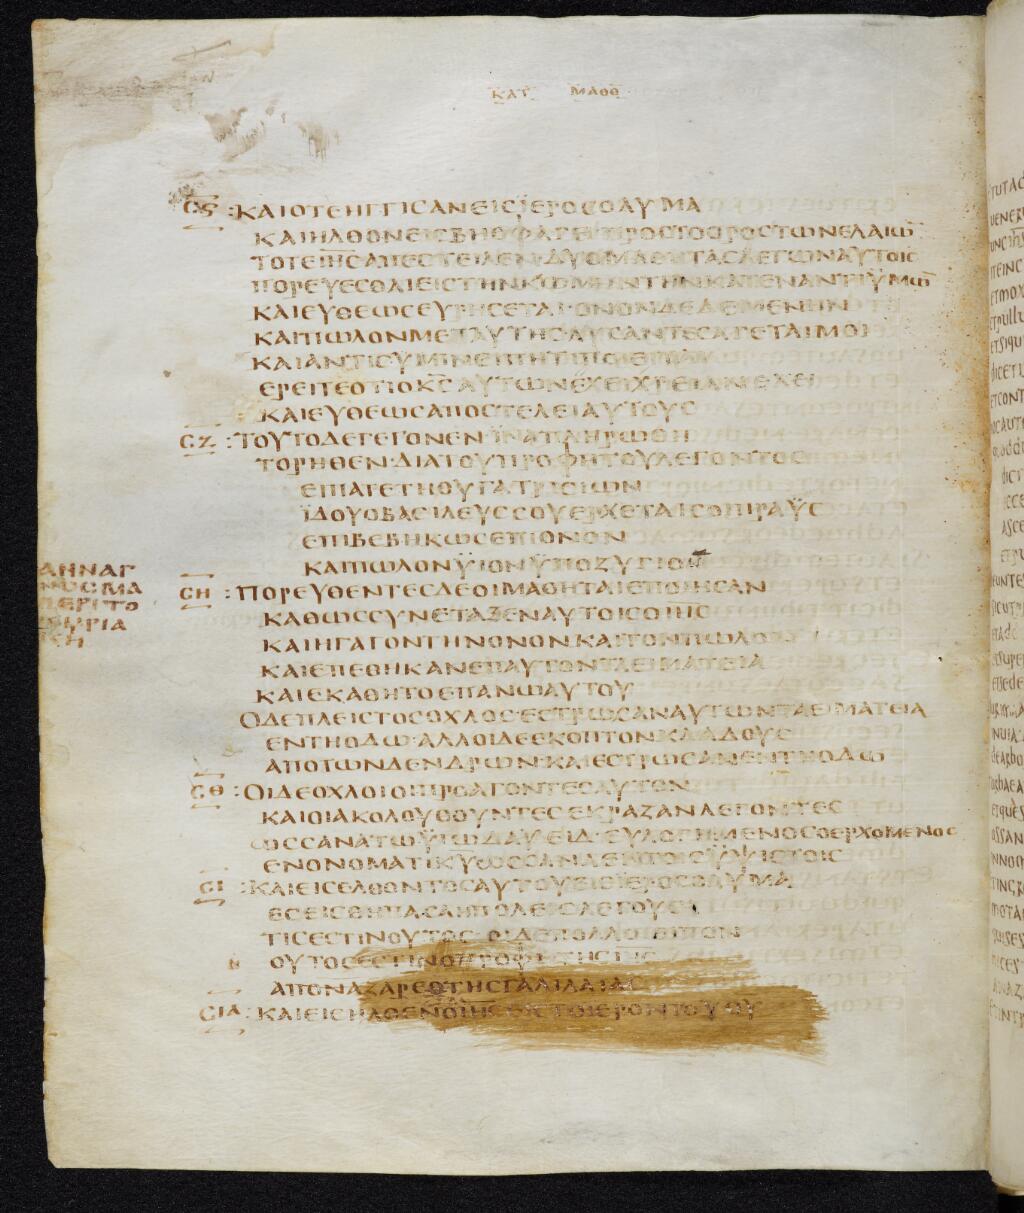 ΚΑΤ ΜΑΘΘ
Ϲϛ : ΚΑΙΟΤΕΗΓΓΙϹΑΝΕΙϹΪΕΡΟϹΟΛΥΜΑ
ΚΑΙΗΛΘΟΝΕΙϹΒΗΘΦΑΓΗ ΠΡΟϹΤΟΟΡΟϹΤΩΝΕΛΑΙΩ̅
ΤΟΤΕΙΗϹΑΠΕϹΤΕΙΛΕΝΔΥΟΜΑΘΗΤΑϹΛΕΓΩΝΑΥΤΟΙϹ
ΠΟΡΕΥΕϹΘΑΙΕΙϹΤΗΝΚΩΜΗΝΤΗΝΚΑΤΕΝΑΝΤΙΫΜΩ̅
ΚΑΙΕΥΘΕΩϹΕΥΡΗϹΕΤΑΙΟΝΟΝΔΕΔΕΜΕΝΗΝ
ΚΑΙΠΩΛΟΝΜΕΤΑΥΤΗϹΛΥϹΑΝΤΕϹΑΓΕΤΑΙΜΟΙ
ΚΑΙΑΝΤΙϹΥΜΙΝΕΙΠΗΤΙΠΟΙΕΙΤΑΙ
ΕΡΕΙΤΕΟΤΙΟΚ̅Ϲ̅ΑΥΤΩΝΕΧΕΙΧΡΕΙΑΝΕΧΕΙ
ΚΑΙΕΥΘΕΩϹΑΠΟϹΤΕΛΕΙΑΥΤΟΥϹ
ϹΖ : ΤΟΥΤΟΔΕΓΕΓΟΝΕΝΪΝΑΠΛΗΡΩΘΗ
ΤΟΡΗΘΕΝ·ΔΙΑΤΟΥΠΡΟΦΗΤΟΥΛΕΓΟΝΤΟϹ
ΕΙΠΑΤΕΤΗΘΥΓΑΤΡΙϹΙΩΝ
ΪΔΟΥΟΒΑϹΙΛΕΥϹϹΟΥΕΡΧΕΤΑΙϹΟΙΠΡΑΫϹ
ΕΠΙΒΕΒΗΚΩϹΕΠΙΟΝΟΝ
ΚΑΙΠΩΛΟΝΫΙΟΝΫΠΟΖΥΓΙΟΥ
ΑΝΝΑΓ
ΝΟϹΜΑ
ΠΕΡΙΤΟ
ΚΥΡΙΑ
ΚΗ
ϹΗ : ΠΟΡΕΥΘΕΝΤΕϹΔΕΟΙΜΑΘΗΤΑΙΕΠΟΙΗϹΑΝ
ΚΑΘΩϹϹΥΝΕΤΑΞΕΝΑΥΤΟΙϹΟΙΗϹ
ΚΑΙΗΓΑΓΟΝΤΗΝΟΝΟΝ·ΚΑΙΤΟΝΠΩΛΟΝ
ΚΑΙΕΠΕΘΗΚΑΝΕΠΑΥΤΟΝΤΑΕΙΜΑΤΕΙΑ
ΚΑΙΕΚΑΘΗΤΟΕΠΑΝΩΑΥΤΟΥ
ΟΔΕΠΛΕΙϹΤΟϹΟΧΛΟϹΕϹΤΡΩϹΑΝΑΥΤΩΝΤΑΕΙΜΑΤΕΙΑ
ΕΝΤΗΟΔΩ·ΑΛΛΟΙΔΕΕΚΟΠΤΟΝΚΛΑΔΟΥϹ
ΑΠΟΤΩΝΔΕΝΔΡΩΝ·ΚΑΙΕϹΤΡΩϹΑΝΕΝΤΗΟΔΩ
ϹΘ : ΟΙΔΕΟΧΛΟΙΟΙΠΡΟΑΓΟΝΤΕϹΑΥΤΟΝ
ΚΑΙΟΙΑΚΟΛΟΥΘΟΥΝΤΕϹΕΚΡΑΖΑΝΛΕΓΟΝΤΕϹ
ΩϹϹΑΝΑΤΩΫΙΩΔΑΥΕΙΔ·ΕΥΛΟΓΗΜΕΝΟϹΟΕΡΧΟΜΕΝΟϹ
ΕΝΟΝΟΜΑΤΙΚ̅Υ̅ΩϹϹΑΝΑΕΝΤΟΙϹΫΨΙϹΤΟΙϹ
ϹΙ : ΚΑΙΕΙϹΕΛΘΟΝΤΟϹΑΥΤΟΥΕΙϹΪΕΡΟϹΟΛΥΜΑ
ΕϹΕΙϹΘΗΠΑϹΑΗΠΟΛΕΙϹΛΕΓΟΥϹΑ
ΤΙϹΕϹΤΙΝΟΥΤΟϹ· ΟΙΔΕΠΟΛΛΟΙΕΙΠΟΝ
ΟΥΤΟϹΕϹΤΙΝΟΠΡΟΦΗΤΗϹΙΗϹ
ΑΠΟΝΑΖΑΡΕΘΤΗϹΓΑΛΙΛΑΙΑϹ
ϹΙΑ : ΚΑΙΕΙϹΗΛΘΕΝΟΙΗϹΕΙϹΤΟΙΕΡΟΝΤΟΥΘΥ